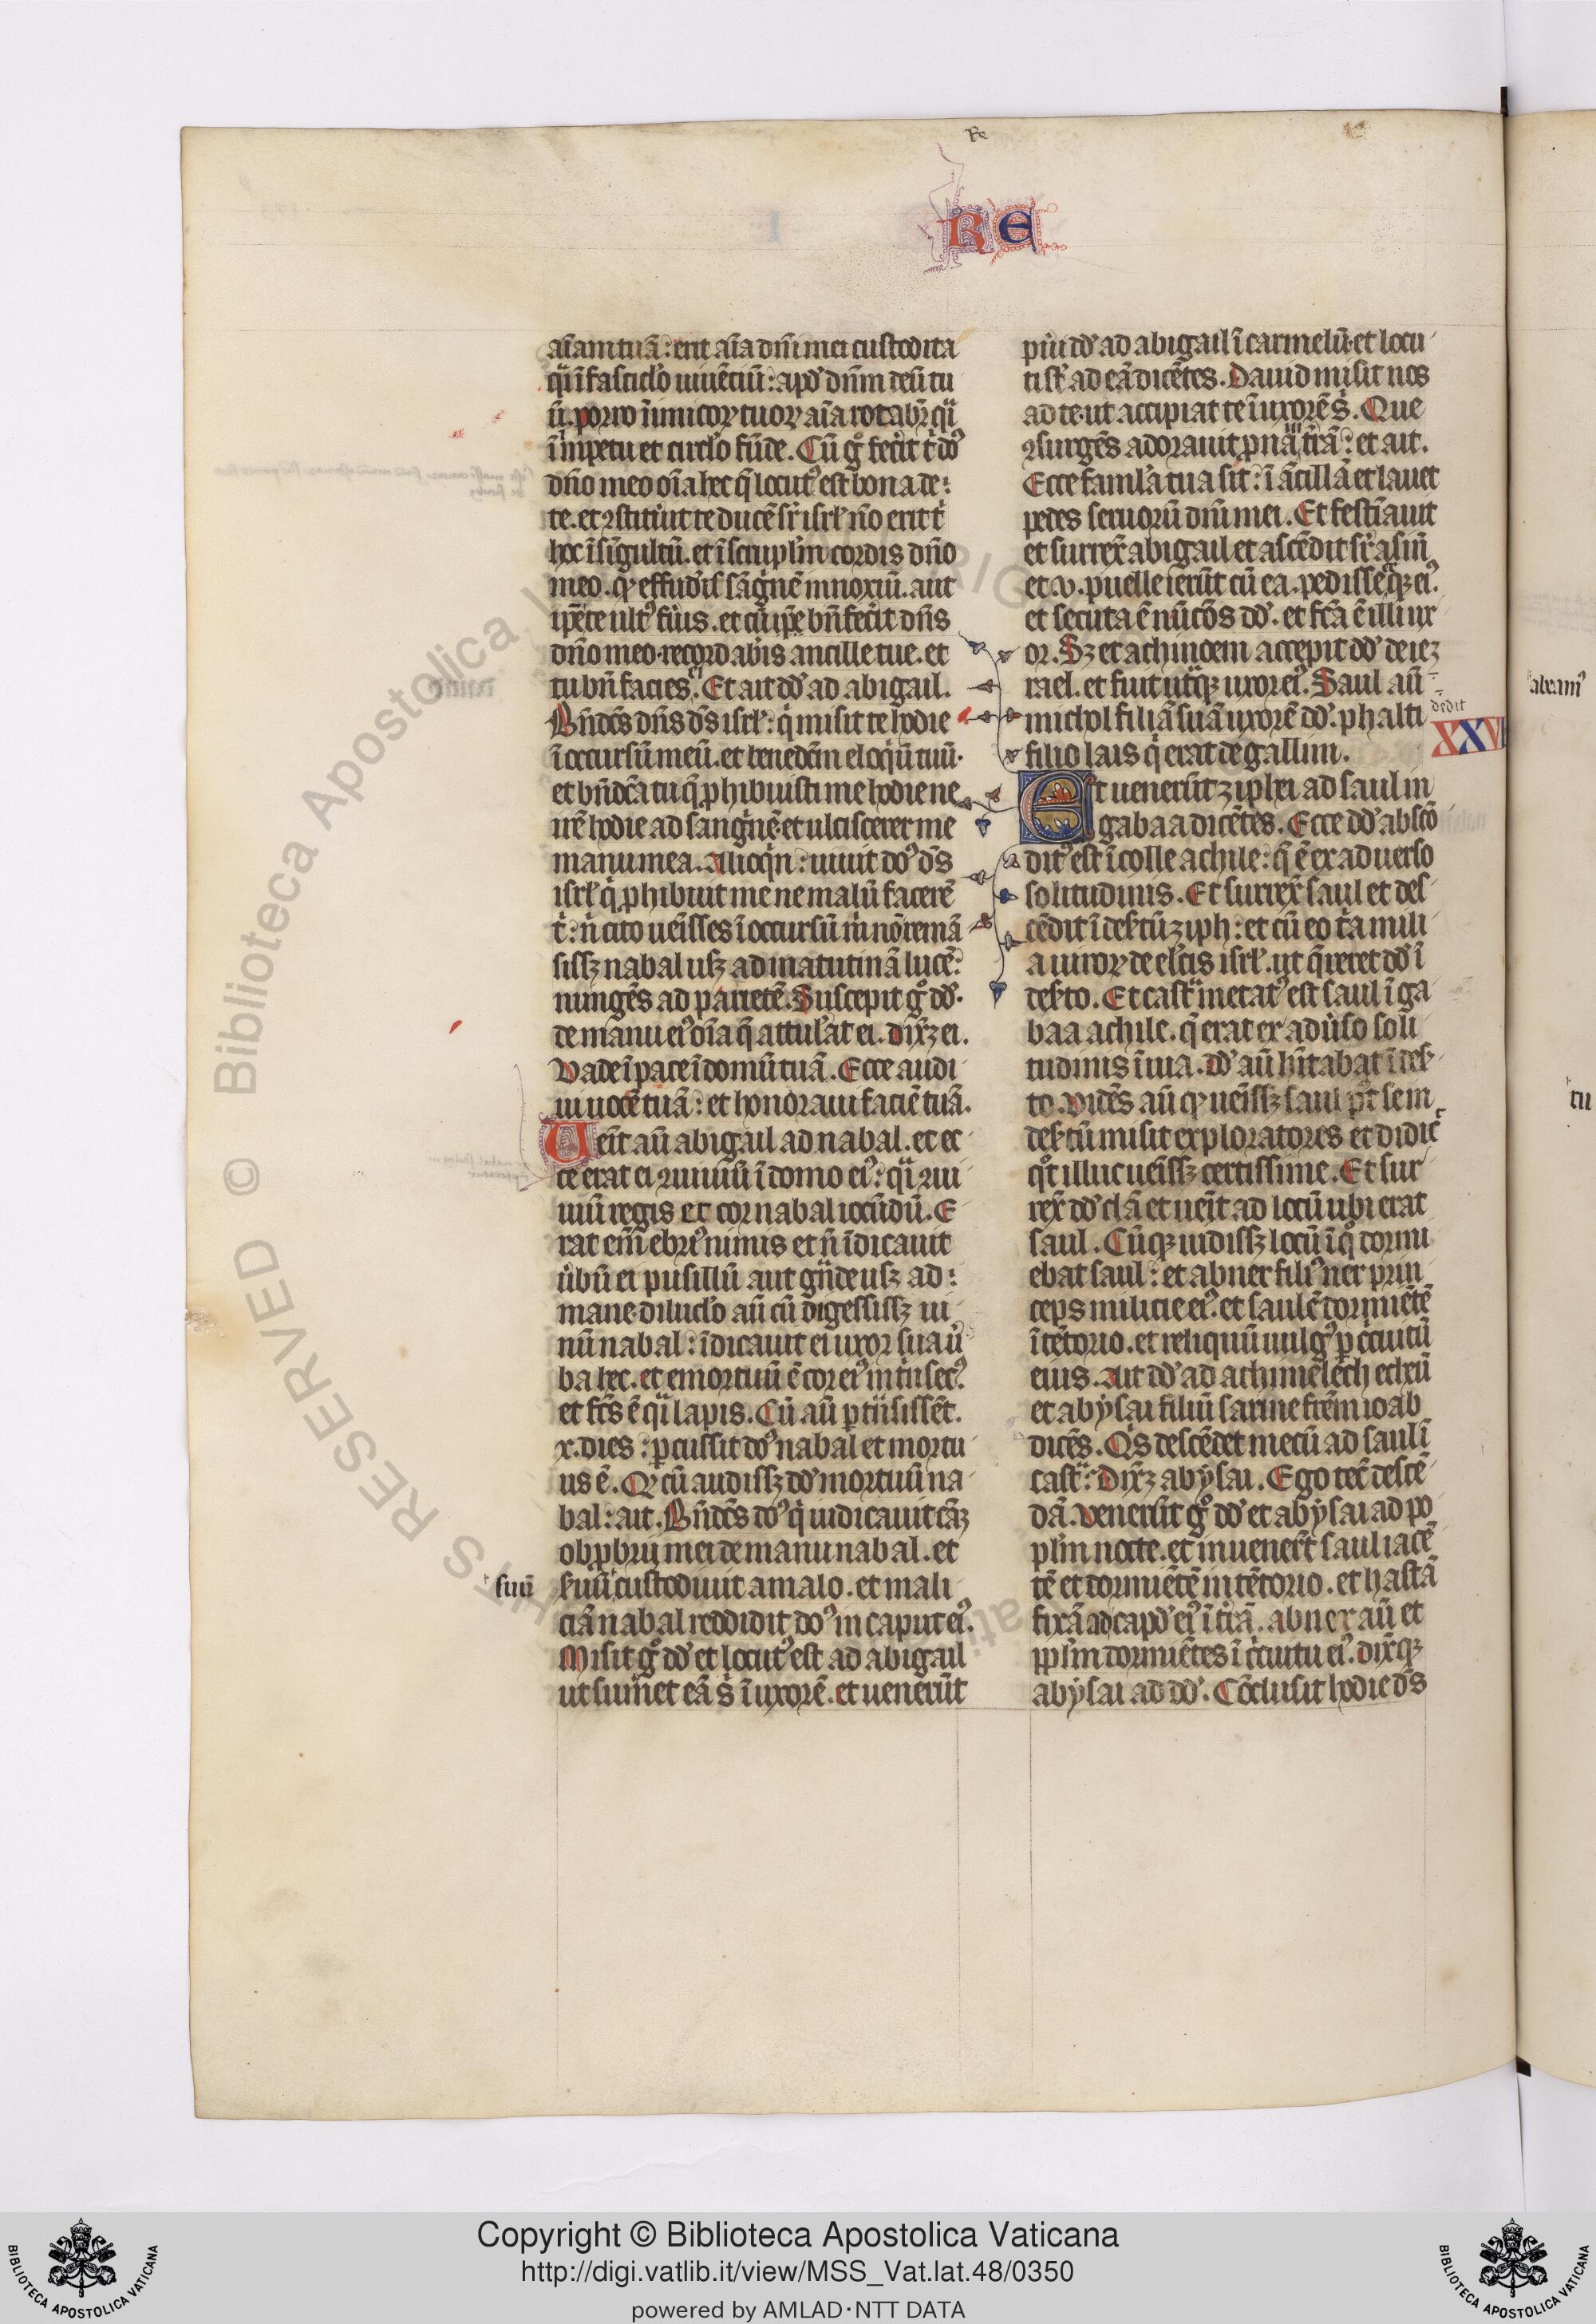 Re
RE
aīam tuā : erit aīa dnī mei custodita
q̄i ī fasciclo uiuētiū : apd' dn̄m deū tu
ū. porro īnimicoꝝ tuoꝝ aīa rotabit̉ q̄i
ī impetu et circlo fūde. Cū gͦ fecit t̉ doꝰ
dn̄o meo oīa hec q̄ locutꝰ est bona de
te. et ꝯstituit te ducē sr̄ isrl̄. nō erit t̉
hoc ī singultū. et ī scrupl'm cordis dn̄o
meo. qꝫ effuderis sāgnē innoxiū. aut
ip̄e te ultꝰ fuis. et cū ip̄e bn̄fecit dn̄s
dn̄o meo. recordabis ancille tue. et
tu bn̄ facies. Et ait dd̄ ad abigail.
Bn̄dcs dn̄s ds isrl̄. q̉ misit te hodie
ī occursū meū. et benedcm̄ eloq̉ū tuū.
et bn̄dcā tu q̄ ꝓhibuisti me hodie ne
irē hodie ad sāgnē et ulciscerer me
manu mea. Alioq̉n : uiuit doꝰ ds
isrl̄ q̉ ꝓhibuit me ne malū facerē
t̉ : n̄ cito uēisses ī occursū m̉ nō remā
sissꝫ nabal usqꝫ ad matutinā lucē.
mingēs ad parietē. Suscepit gͦ dd̄.
de manu eiꝰ oīa q̄ attul'at ei. dixꝫ ei.
Vade ī pace ī domū tuā. Ecce audi
ui uocē tuā : et honoraui faciē tuā.
Uēit aū abigail ad nabal. et ec
ce erat ei ꝯuiuiū ī domo eiꝰ q̄i ꝯui
uiū regis et cor nabal iocūdū. E
rat em̄ ebriꝰ nimis et n̄ īdicauit
ubū ei pusillū aut gn̄de usqꝫ ad
mane. diluclo aū cū digessissꝫ ui
nū nabal : īdicauit ei uxor sua u
ba hec. et emortuū ē cor eiꝰ int̉nsecꝰ
et fcs̄ ē q̄i lapis. Cū aū ꝑtn̄sissēt.
x. dies : ꝑcussit doꝰ nabal et mortu
us ē. Qꝫ cū audissꝫ dd̄ mortuū na
bal : ait. Bn̄dcs doꝰ q̉ iudicauit cāꝫ
obprbrij mei de manu nabal. et
suū
suū custodiuit a malo. et mali
ciā nabal reddidit doꝰ in caput eiꝰ.
Misit gͦ dd̄ et locutꝰ est ad abigail
ut sum̄et eā s̉ ī uxorē. et uenerūt
pui dd̄ ad abigail ī carmelū. et locu
ti st̄ ad eā dicētes. Dauid misit nos
ad te. ut accipiat te ī uxorē s̉. Que
ꝯsurgēs adorauit ꝓna ī trā : et ait.
Ecce faml'a tua sit : ī ācillā et lauet
pedes seruorū dnī mei. Et festīauit
et surrex̄ abigail et ascēdit sr̄ asinū
et .v. puelle ierūt cū ea. pedisseqꝫ eiꝰ.
et secuta ē nūcōs dd̄. et fcā ē illi ux
or. Sꝫ et achinoem accepit dd̄ de iez
rael. et fuit ut̄qꝫ uxor eiꝰ. Saul aū
dedit
michol filiā suā uxorē dd̄. phalti
XXVI
filio lais q̉ erat de gallim.
Et uenerūt ziphei ad saul in
gabaa dicētes. Ecce dd̄ abscō
ditꝰ est ī colle achile : q̄ ē ex aduerso
solitudinis. Et surrex̄ saul et des
cēdit ī des̄tū ziph : et cū eo t̉a mili
a uiroꝝ de el'cis isrl̄. ut q̄reret dd̄ ī
des̄to. Et castra metatꝰ est saul ī ga
baa achile. q̄ erat ex aduso soli
tudinis ī uia. dd̄ aū hītabat ī des̄
to. Vidēs aū qꝫ uēissꝫ saul pt se in
des̄tū misit exploratores et didic̄
qͦt illuc uēissꝫ certissime. Et sur
rex̄ dd̄ clā et uēit ad locū ubi erat
saul. Cūqꝫ uidissꝫ locū ī qͦ dormi
ebat saul : et abner filiꝰ ner prin
ceps milicie eiꝰ. et saulē dormiētē
ī tētorio. et reliquū uulgꝰ ꝑ circuitū
eius. Ait dd̄ ad achimelech etheū
et abysai filiū saruie frēm ioab
dicēs. Qis descēdet mecū ad saul ī
castra. Dixꝫ abysai. Ego tecū descē
dā. Venerūt gͦ dd̄ et abysai ad po
pl'm nocte. et inuenerūt saul iacē
tē et dormiētē in tētorio. et hastā
fixā ad capd' eiꝰ ī trā. abner aū et
ppl'm dormiētes ī circuitu eiꝰ. dixqꝫ
abysai ad dd̄. Cōclusit hodie ds
abeamꝰ
tu
© Biblioteca Apostolica Vaticana
RIGHTS RESERVED
Copyright © Biblioteca Apostolica Vaticana
http://digi.vatlib.it/view/MSS_Vat.lat.48/0350
powered by AMLAD·NTT DATA
BIBLIOTECA APOSTOLICA VATICANA
BIBLIOTECA APOSTOLICA VATICANA